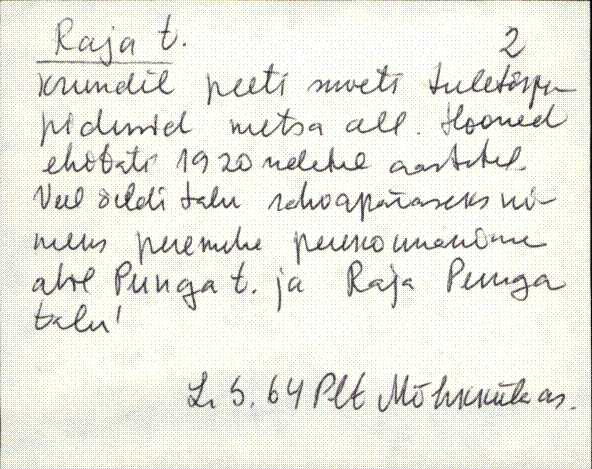 Raja t. 2
krundil peeti suveti tuletõrje
pidusid metsa all. Hooned
ehitati 1920ndatel aastatel.
Veel öeldi talu rahvapäraseks ni-
meks peremehe perekonnanime
abil Punga t. ja Raja Punga
talu!
L. S. 64 Plt Mõhküla as.